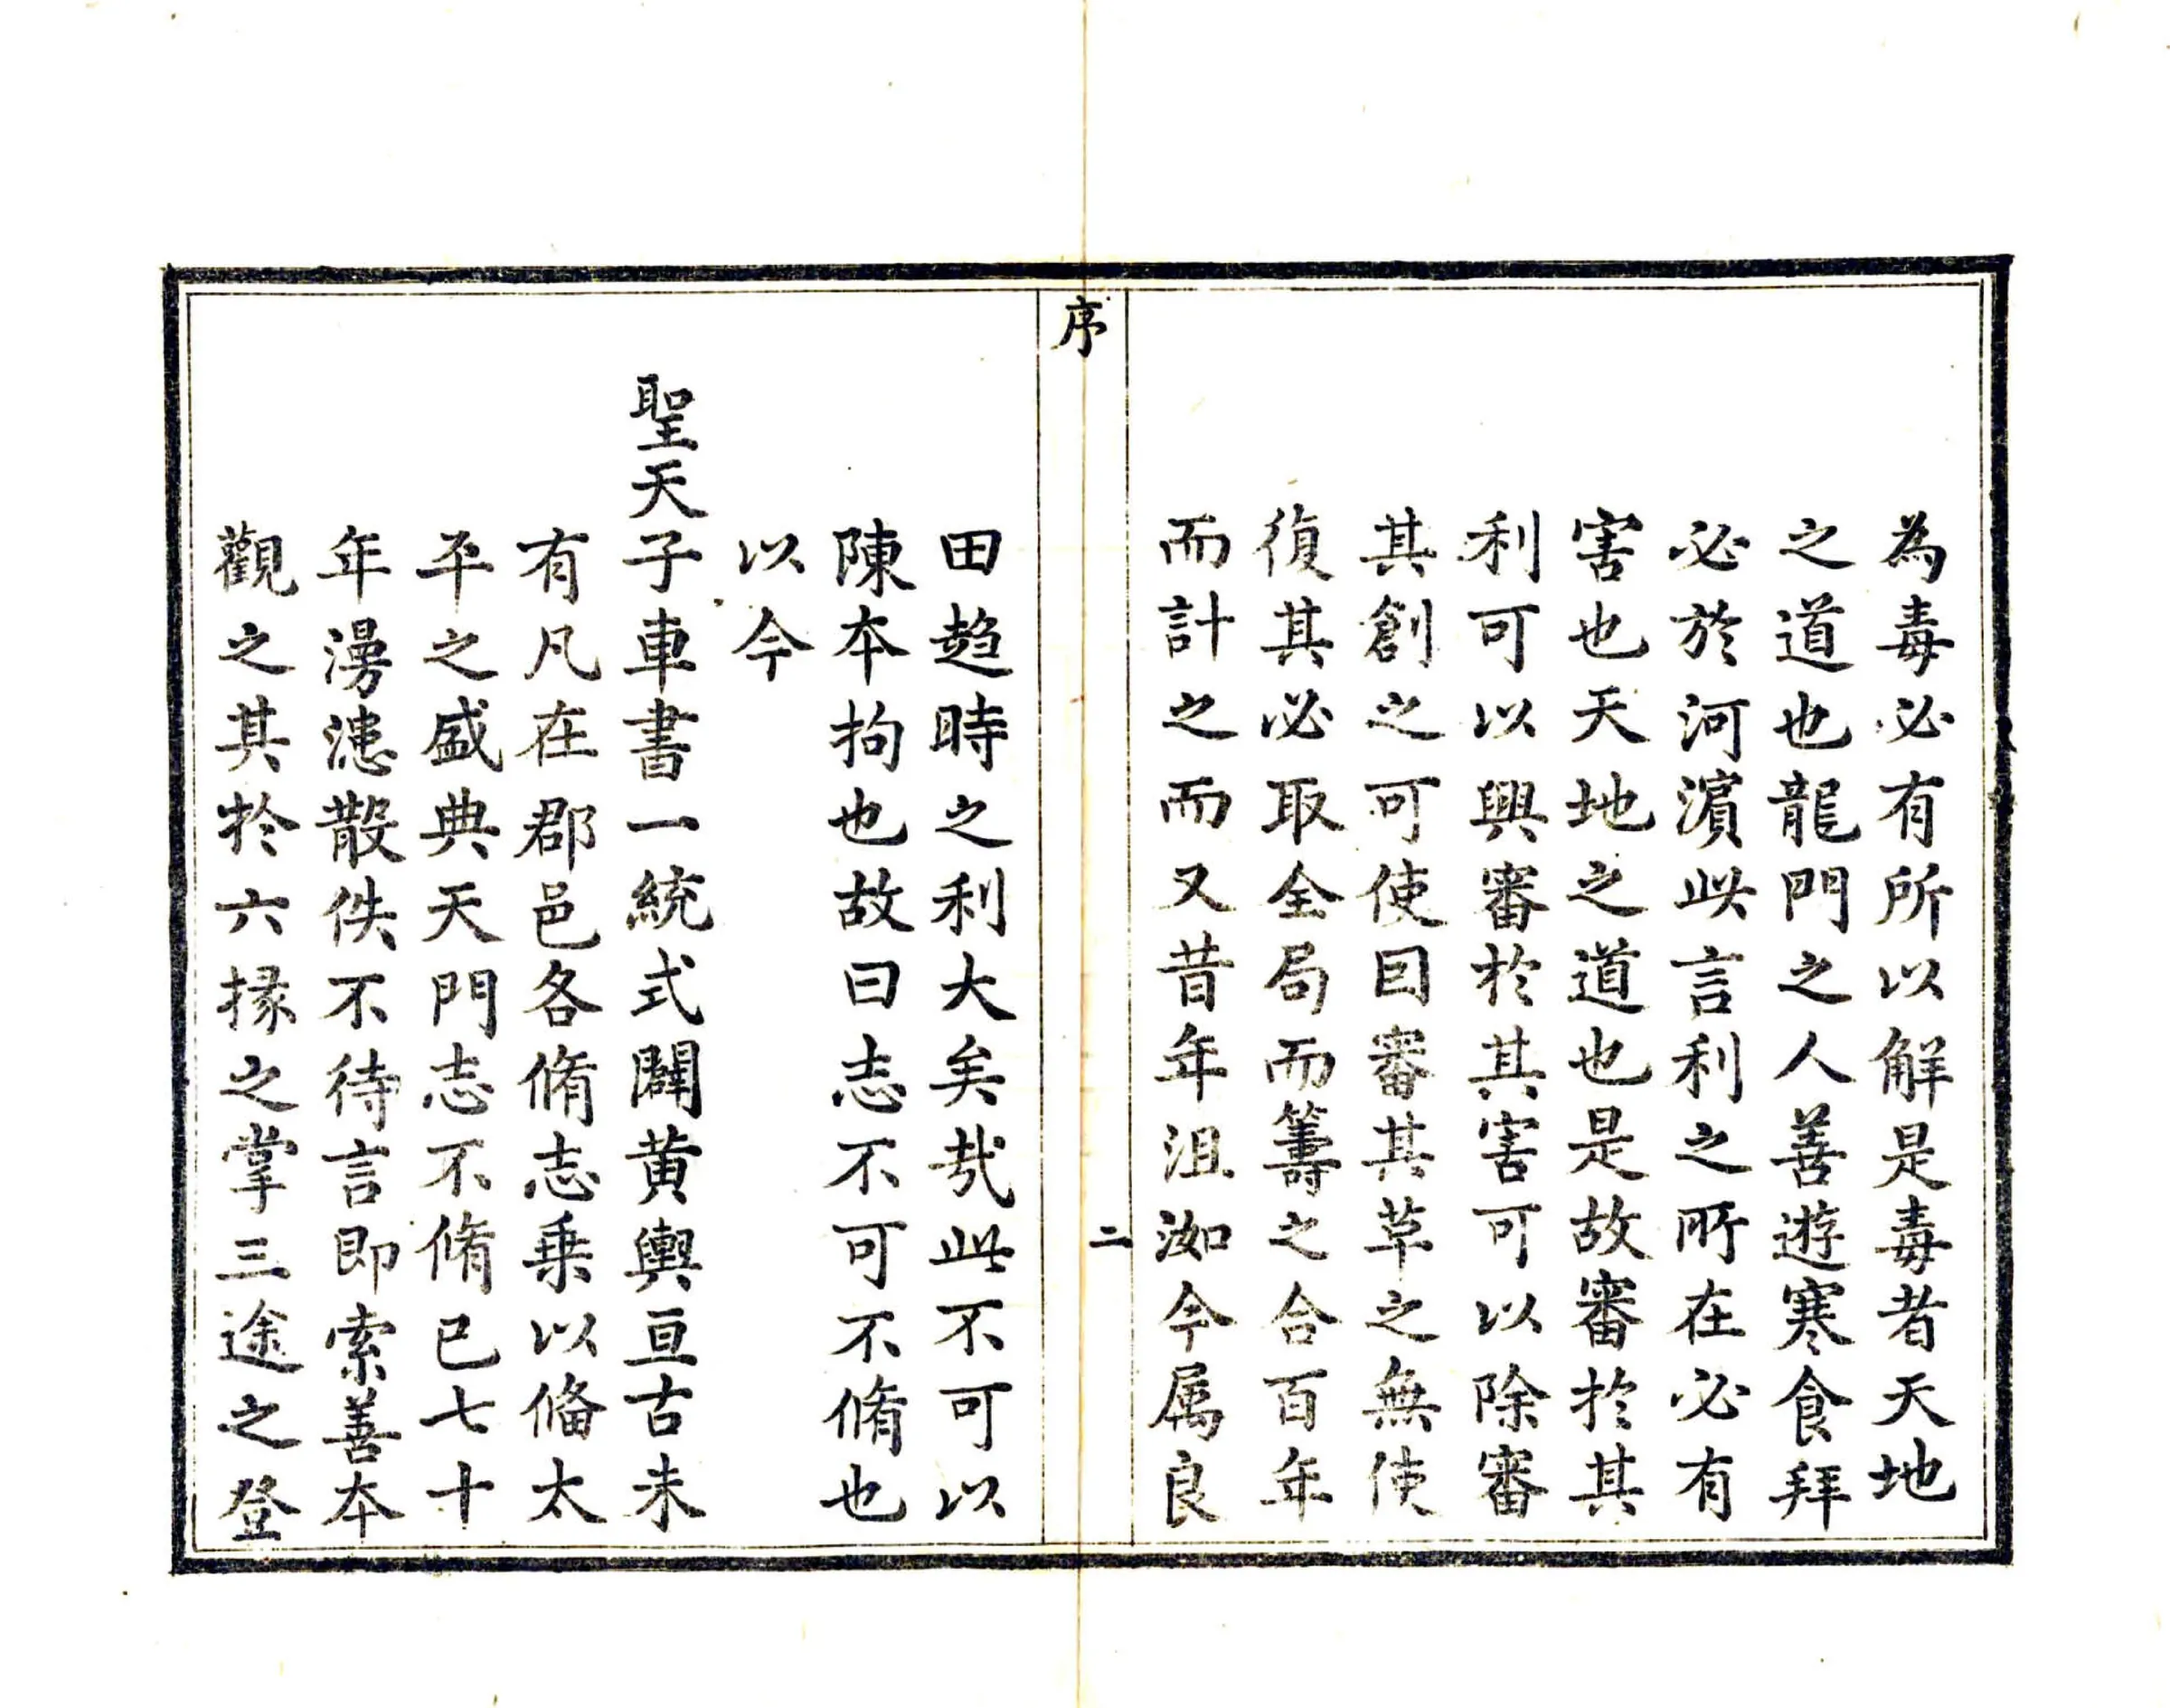 為毒必有所以解是毒者天地
之道也龍門之人善遊寒食拜
必於河濱此言利之所在必有
害也天地之道也是故審於其
利可以興審於其害可以除審
其創之可使因審其草之無使
復其必取全局而籌之合百年
而計之而又昔年沮洳今属良
序
二
田趋時之利大矣哉此不可以
陳本拘也故曰志不可不脩也
以今
聖天子車書一統式闢黄輿亘古未
有凡在郡邑各脩志乗以俻太
平之盛典天門志不脩已七十
年漫漶散佚不待言即索善本
觀之其於六掾之掌三途之登